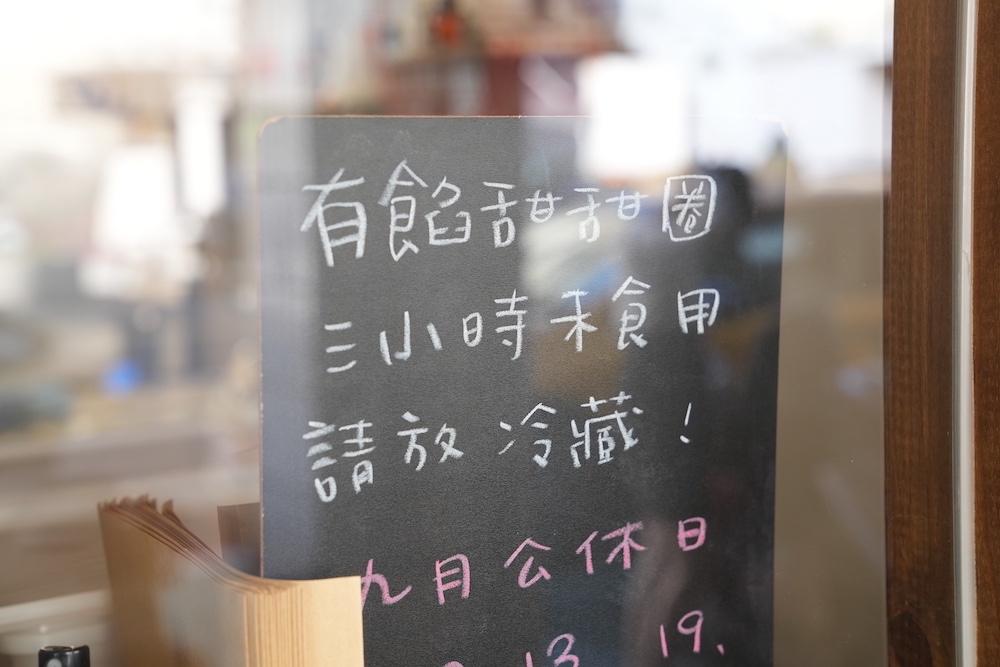 有餡甜甜圈
三小時未食用
請放冷藏!
九月公休日
13 19.